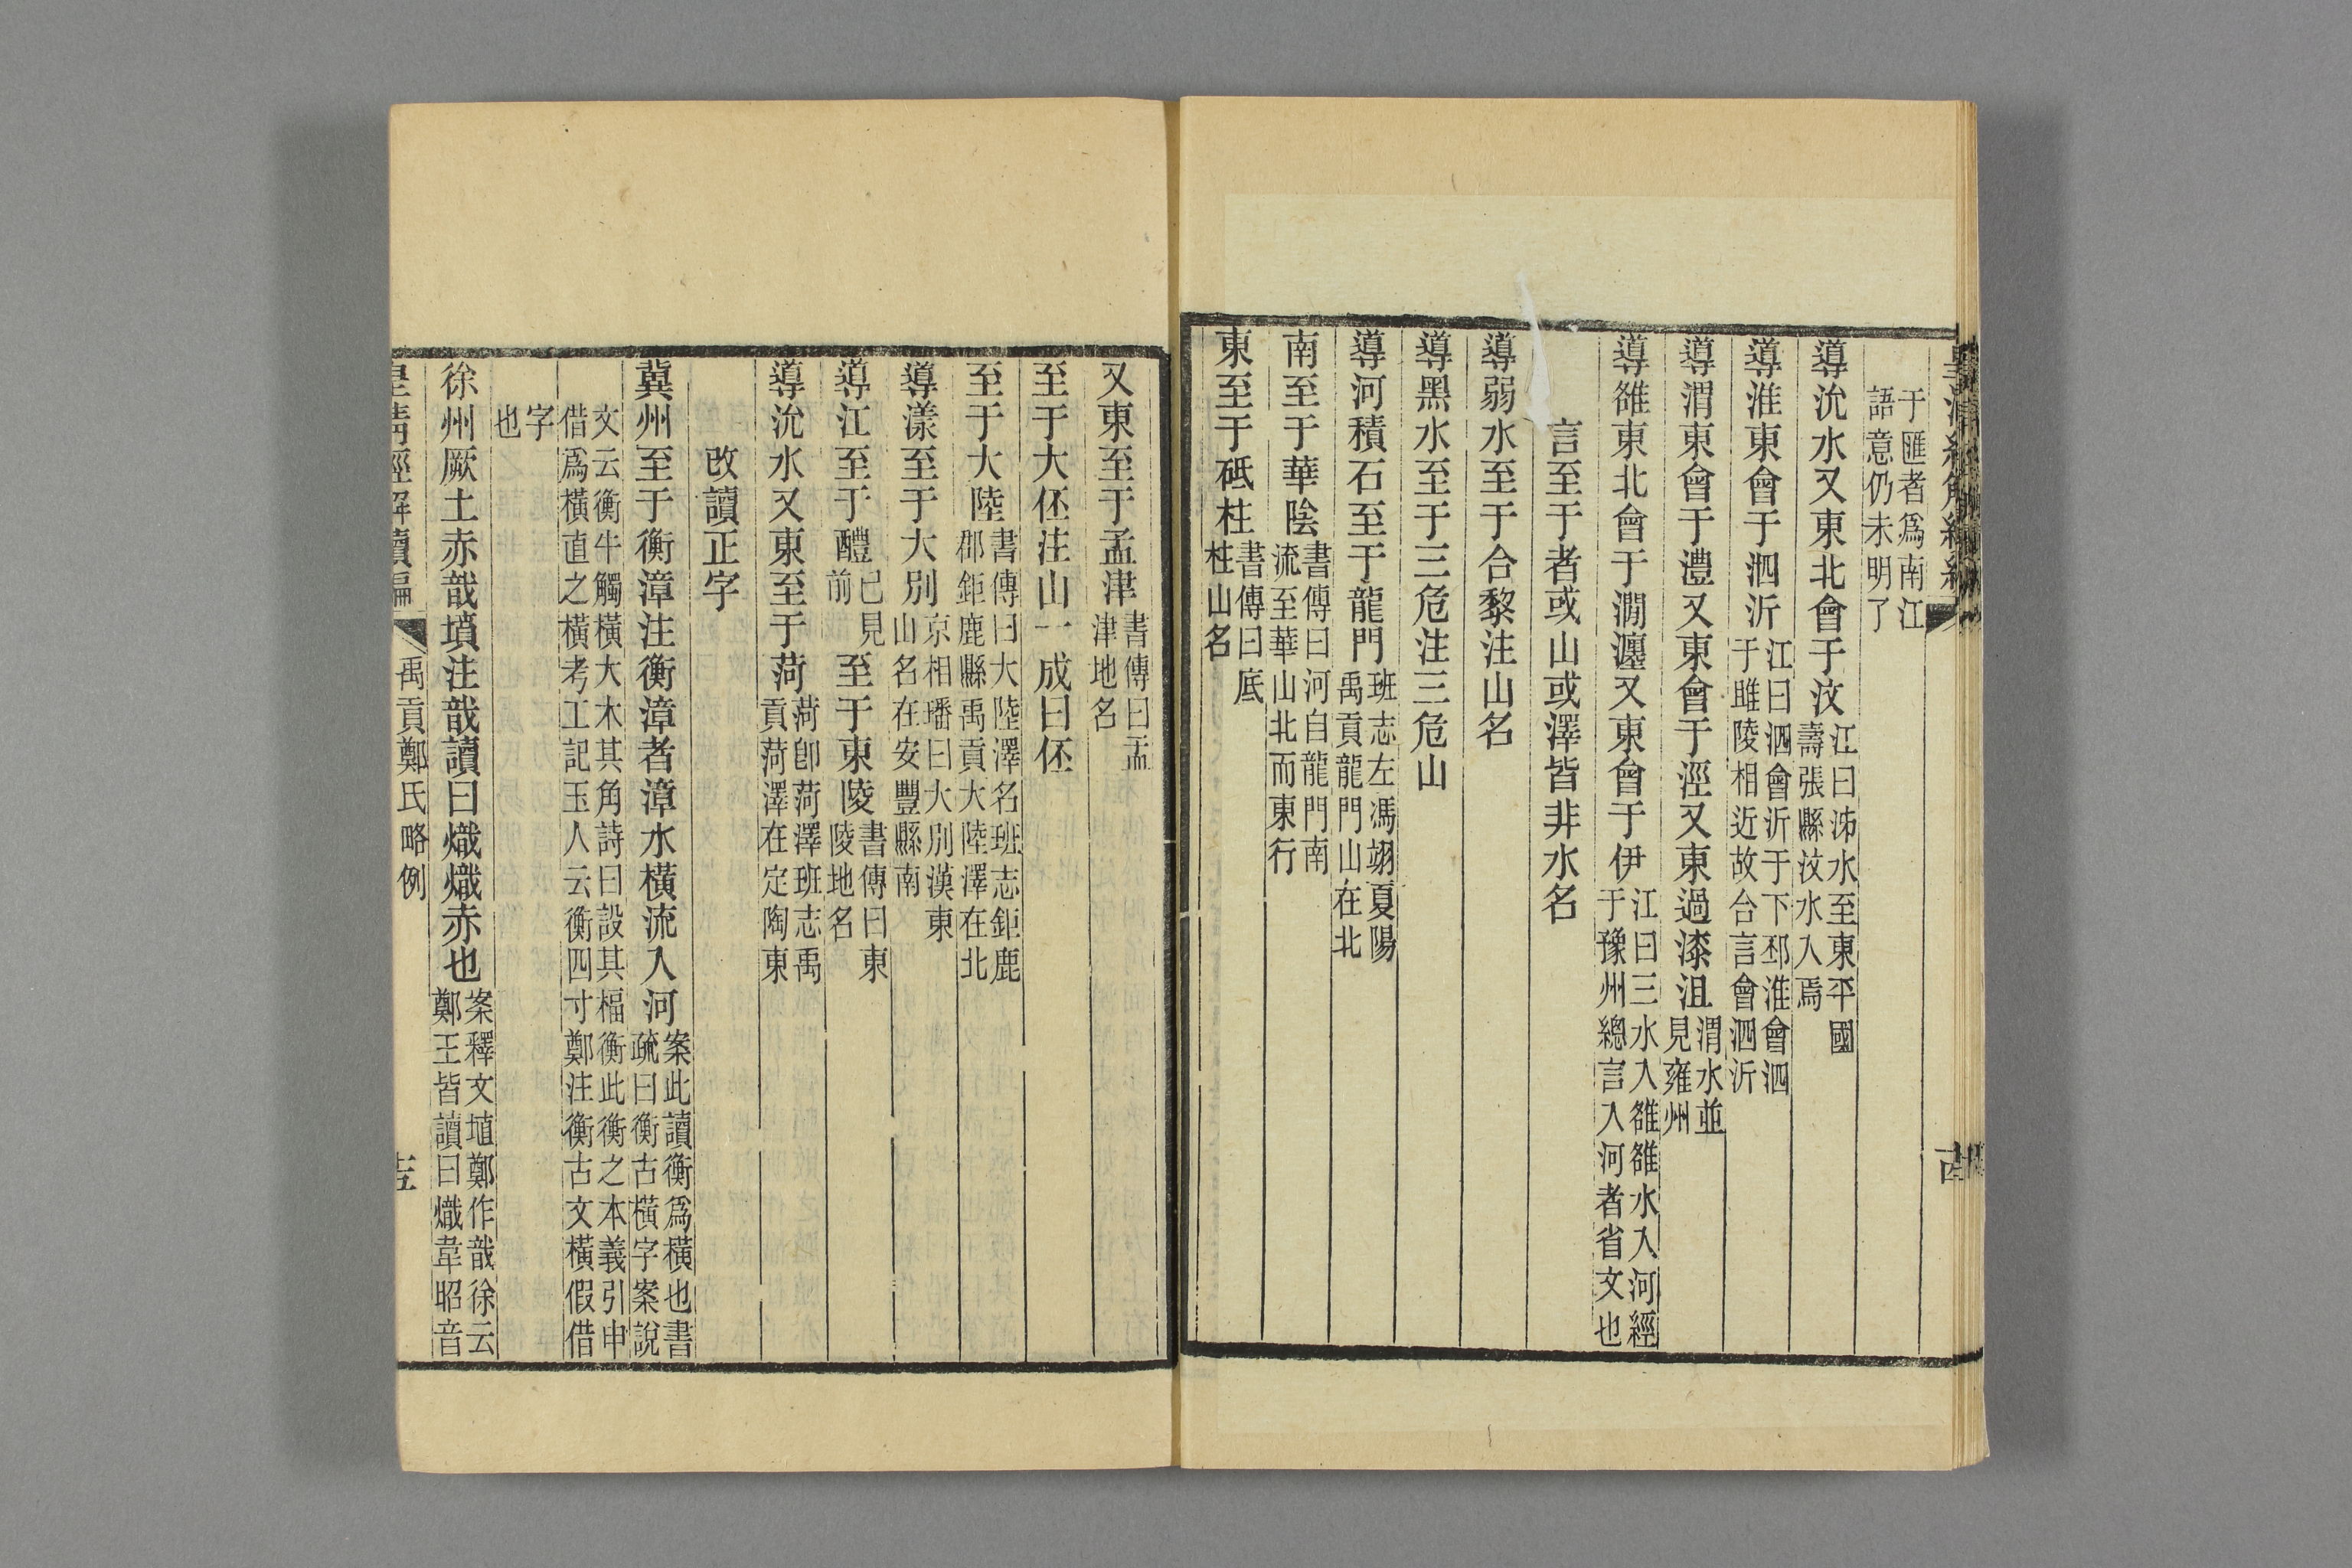 于匯者爲南江
語意仍未明了
導沇水又東北會于汶江曰泲水至東平國
壽張縣汶水入焉
導淮東會于泗沂江曰泗會沂于下邳淮會泗
于雎陵相近故合言會泗沂
導渭東會于澧又東會于涇又東過漆沮渭水並
見雍州
導雒東北會于澗瀍又東會于伊江曰三水入雒雒水入河經
于豫州總言入河者省文也
言至于者或山或澤皆非水名
導弱水至于合黎注山名
導黑水至于三危注三危山
導河積石至于龍門班志左馮翊夏陽
禹貢龍門山在北
南至于華陰書傳曰河自龍門南
流至華山北而東行
東至于砥柱書傳曰底
柱山名
又東至于孟津書傳曰孟
津地名
至于大伾注山一成曰伾
至于大陸書傳曰大陸澤名班志鉅鹿
郡鉅鹿縣禹貢大陸澤在北
導漾至于大別京相璠曰大別漢東
山名在安豐縣南
導江至于醴已見
前至于東陵書傳曰東
陵地名
導沇水又東至于菏菏卽菏澤班志禹
貢菏澤在定陶東
改讀正字
冀州至于衡漳注衡漳者漳水橫流入河案此讀衡爲橫也書
疏曰衡古橫字案說
文云衡牛觸橫大木其角詩曰設其楅衡此衡之本義引申
借爲橫直之橫考工記玉人云衡四寸鄭注衡古文橫假借
字
也
徐州厥土赤戠墳注戠讀曰熾熾赤也案釋文埴鄭作戠徐云
鄭王皆讀曰熾韋昭音
皇淸經解續編
禹貢鄭氏略例
十五